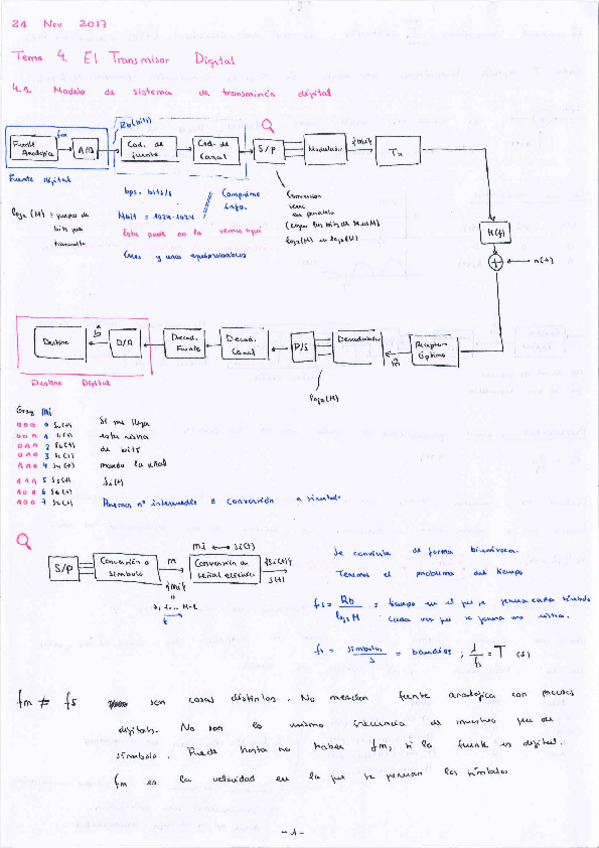 21 Nov 2017
Tema 4. El Transmisor Digital
4.1. Modelo de sistema de transmisión digital
Rb(bits)
Fuente Analógica
fm
A/D
Cod. de fuente
Cod. de Canal
S/P
Modulador
Tx
Fuente digital
bps. bits/s
Nbit = 1024·1024
Comprime info.
Esta parte no la vemos aquí
Ceros y unos equiprobables
log₂(M) = grupos de bits por
Conversión serie en paralelo
H(f)
+
n(t)
Destino
D/A
Decod. Fuente
Decod. Canal
P/S
Demodulador
Receptor Óptimo
Destino Digital
log₂(M)
Gray mi
0 0 0 0 S₀(t)
0 0 1 1 S₁(t)
0 1 1 2 S₂(t)
0 1 0 3 S₃(t)
1 1 0 4 S₄(t)
1 1 1 5 S₅(t)
1 0 1 6 S₆(t)
1 0 0 7 S₇(t)
Si me llega
esta ristra
de bits
mando la señal
Si(t)
Ponemos nº intermedio = conversión a símbolo
S/P
Conversión a símbolo
m
mi ⟷ Si(t)
Conversión a señal eléctrica
{Si(t)}
S(t)
{mi}
0, 1 ... M-1
Se convierte de forma biunívoca.
Tenemos el problema del tiempo
fs = Rb / log₂M = tiempo en el que se genera cada símbolo
cada vez que se genera una ristra.
fs = símbolos / s = baudios ; 1/fs = T (s)
fm ≠ fs son cosas distintas. No mezclen fuente analógica con procesos
digitales. No son lo mismo frecuencia de muestreo que de
símbolo. Puede hasta no haber fm, si la fuente es digital.
fm es la velocidad en la que se generan los símbolos
- 1 -